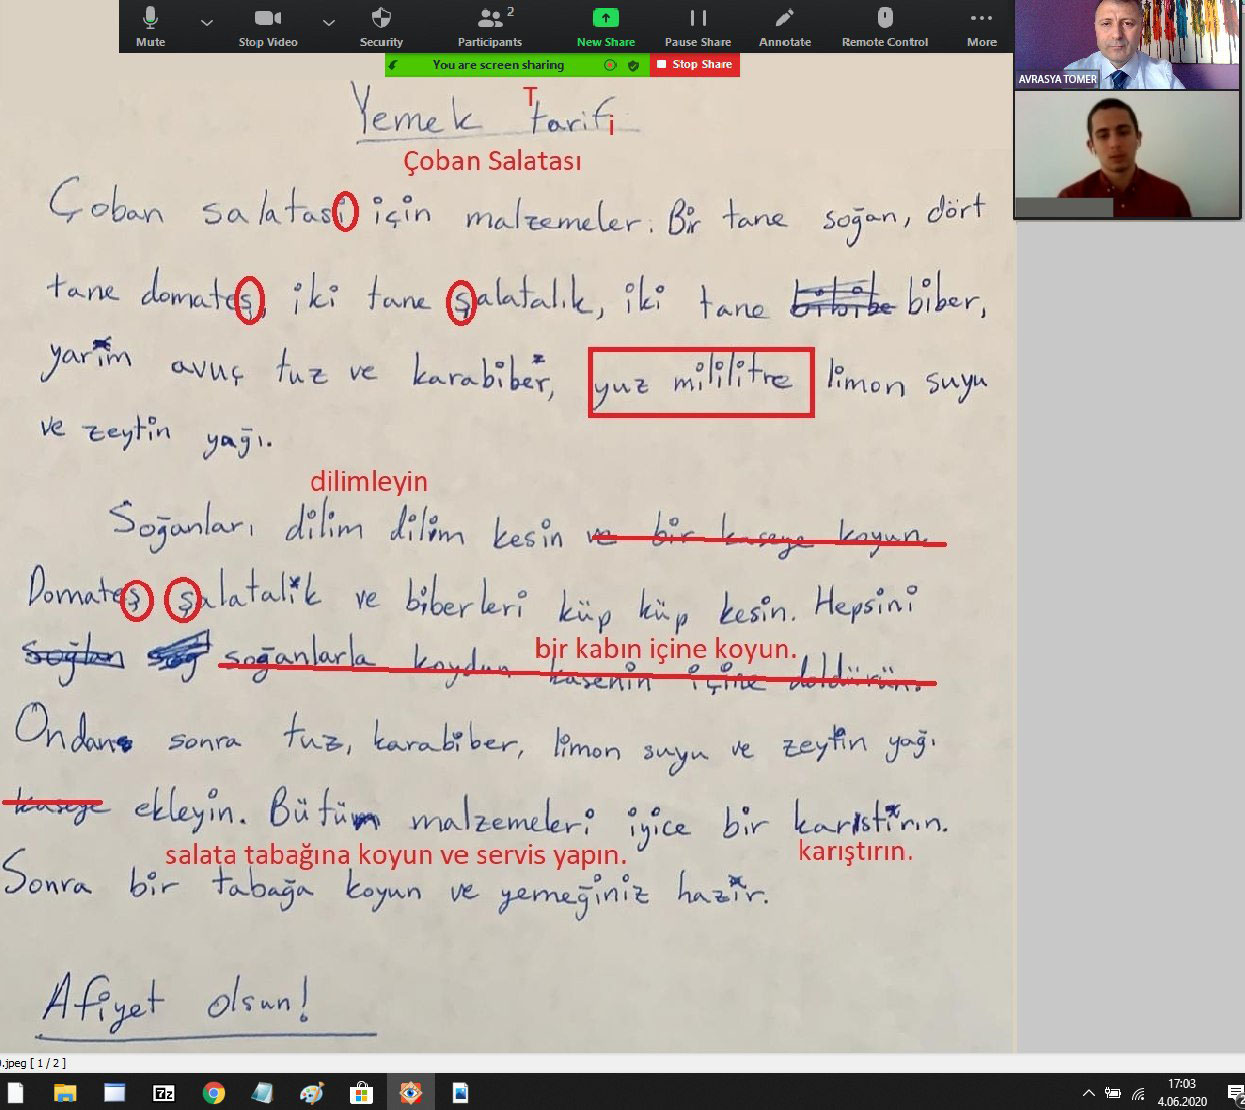 Mute Stop Video Security Participants 2 New Share Pause Share Annotate Remote Control More
You are screen sharing Stop Share
AVRASYA TOMER
T
Yemek tarifi
Çoban Salatası
Çoban salatasi için malzemeler: Bir tane soğan, dört
tane domateş, iki tane şalatalık, iki tane biber,
yarım avuç tuz ve karabiber, yuz mililitre limon suyu
ve zeytin yağı.
dilimleyin
Soğanları dilim dilim kesin ve bir kaseye koyun.
Domateş şalatalık ve biberleri küp küp kesin. Hepsini
bir kabın içine koyun.
soğanlarla koydun kasenin içine doldürün.
Ondan sonra tuz, karabiber, limon suyu ve zeytin yağı
kaseye ekleyin. Bütüm malzemeleri iyice bir karıstırın.
salata tabağına koyun ve servis yapın. karıştırın.
Sonra bir tabağa koyun ve yemeğiniz hazır.
Afiyet olsun!
.jpeg [ 1 / 2 ]
7z
17:03
4.06.2020